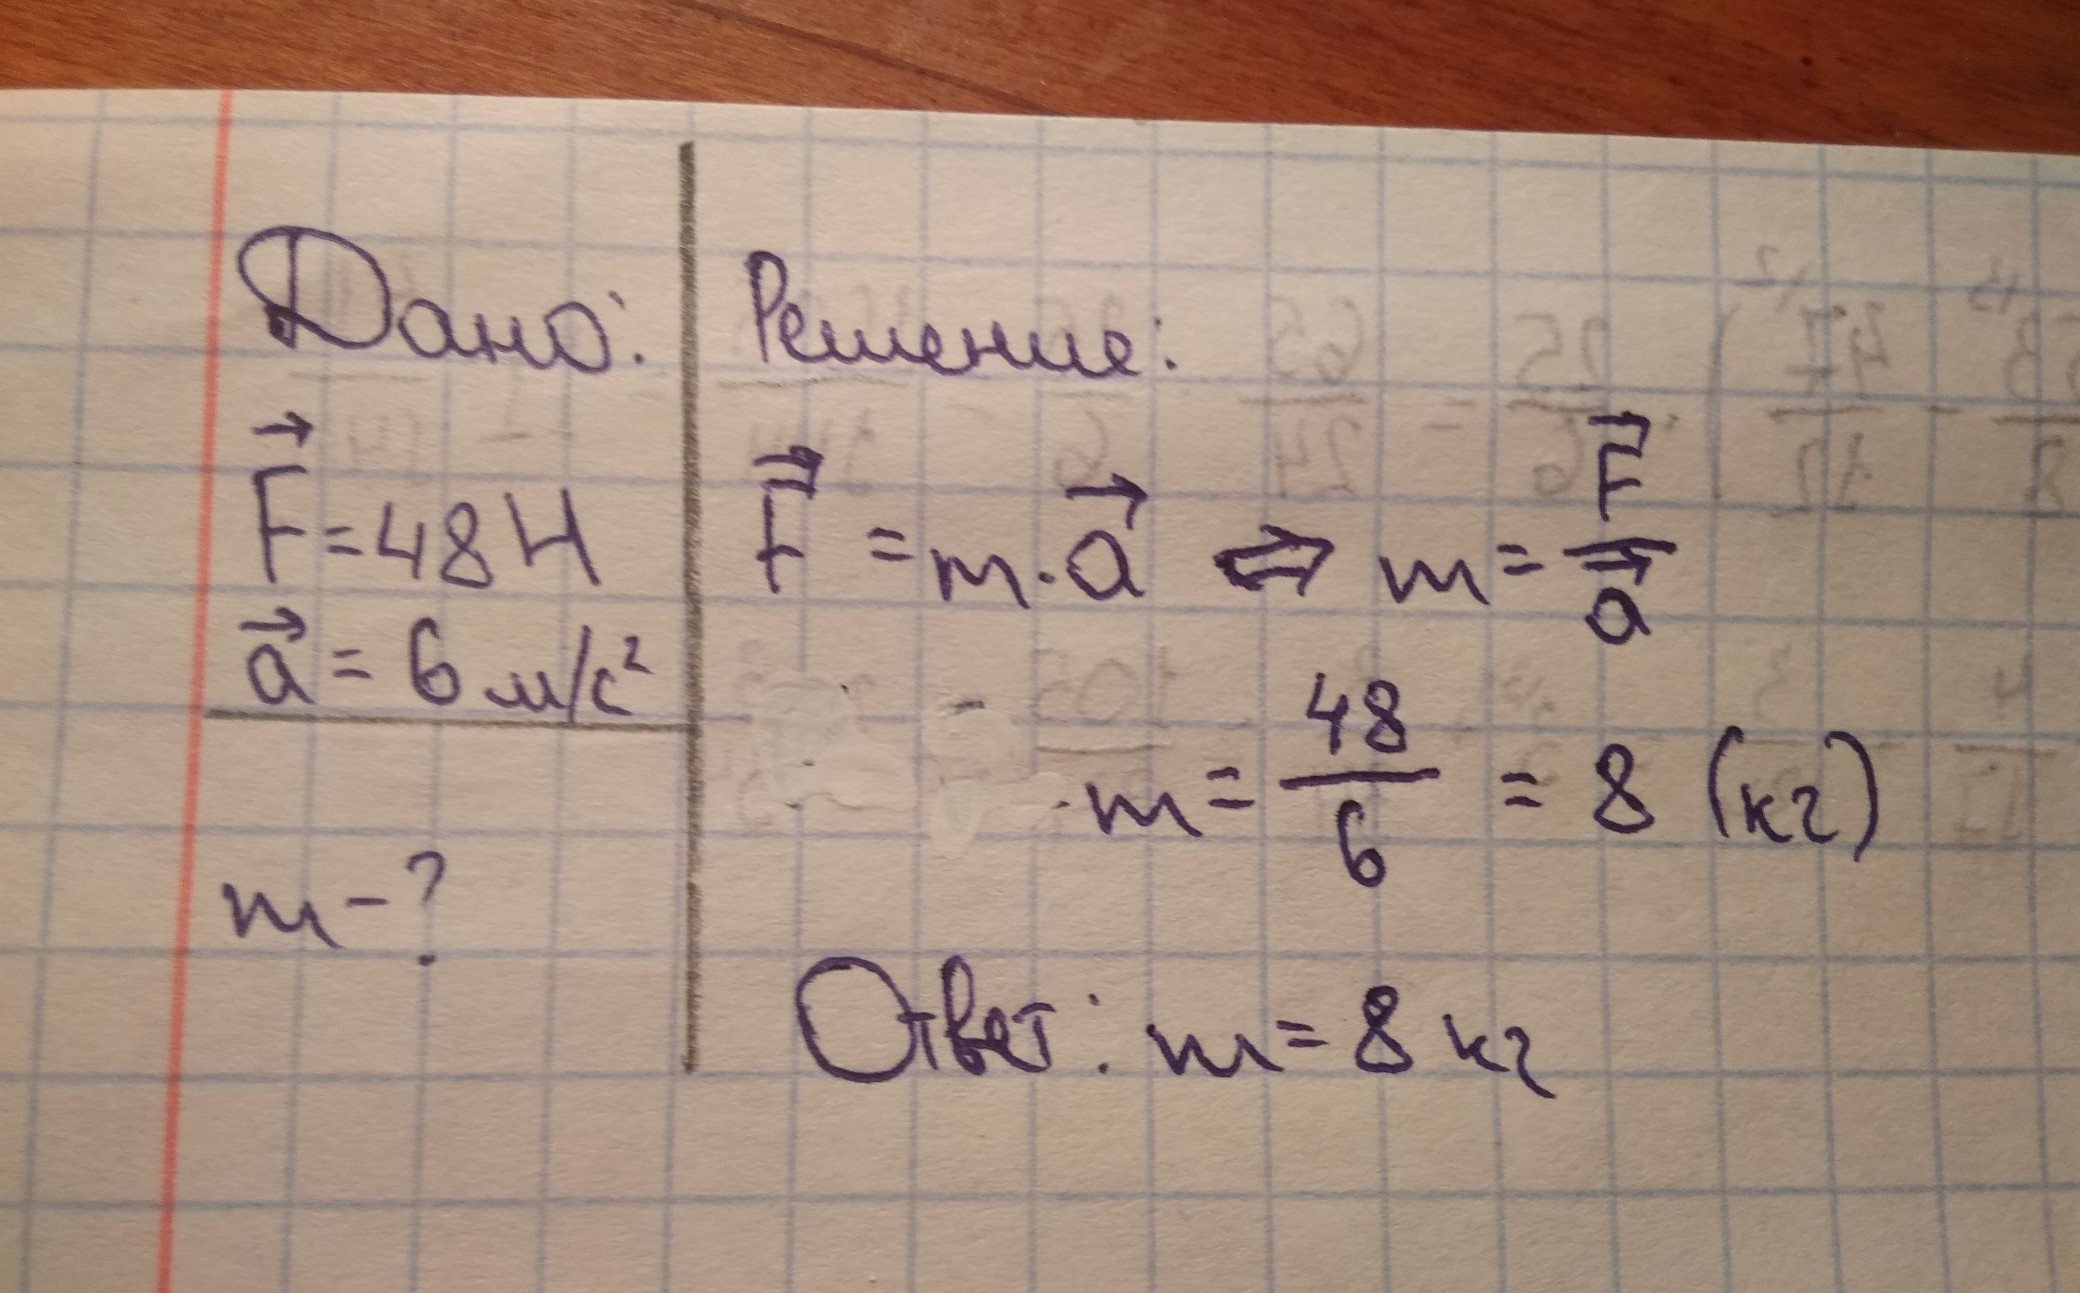 Дано:
F⃗ = 48 Н
a⃗ = 6 м/с²
m - ?
Решение:
F⃗ = m · a⃗ ⇔ m = F⃗ / a⃗
m = 48/6 = 8 (кг)
Ответ: m = 8 кг